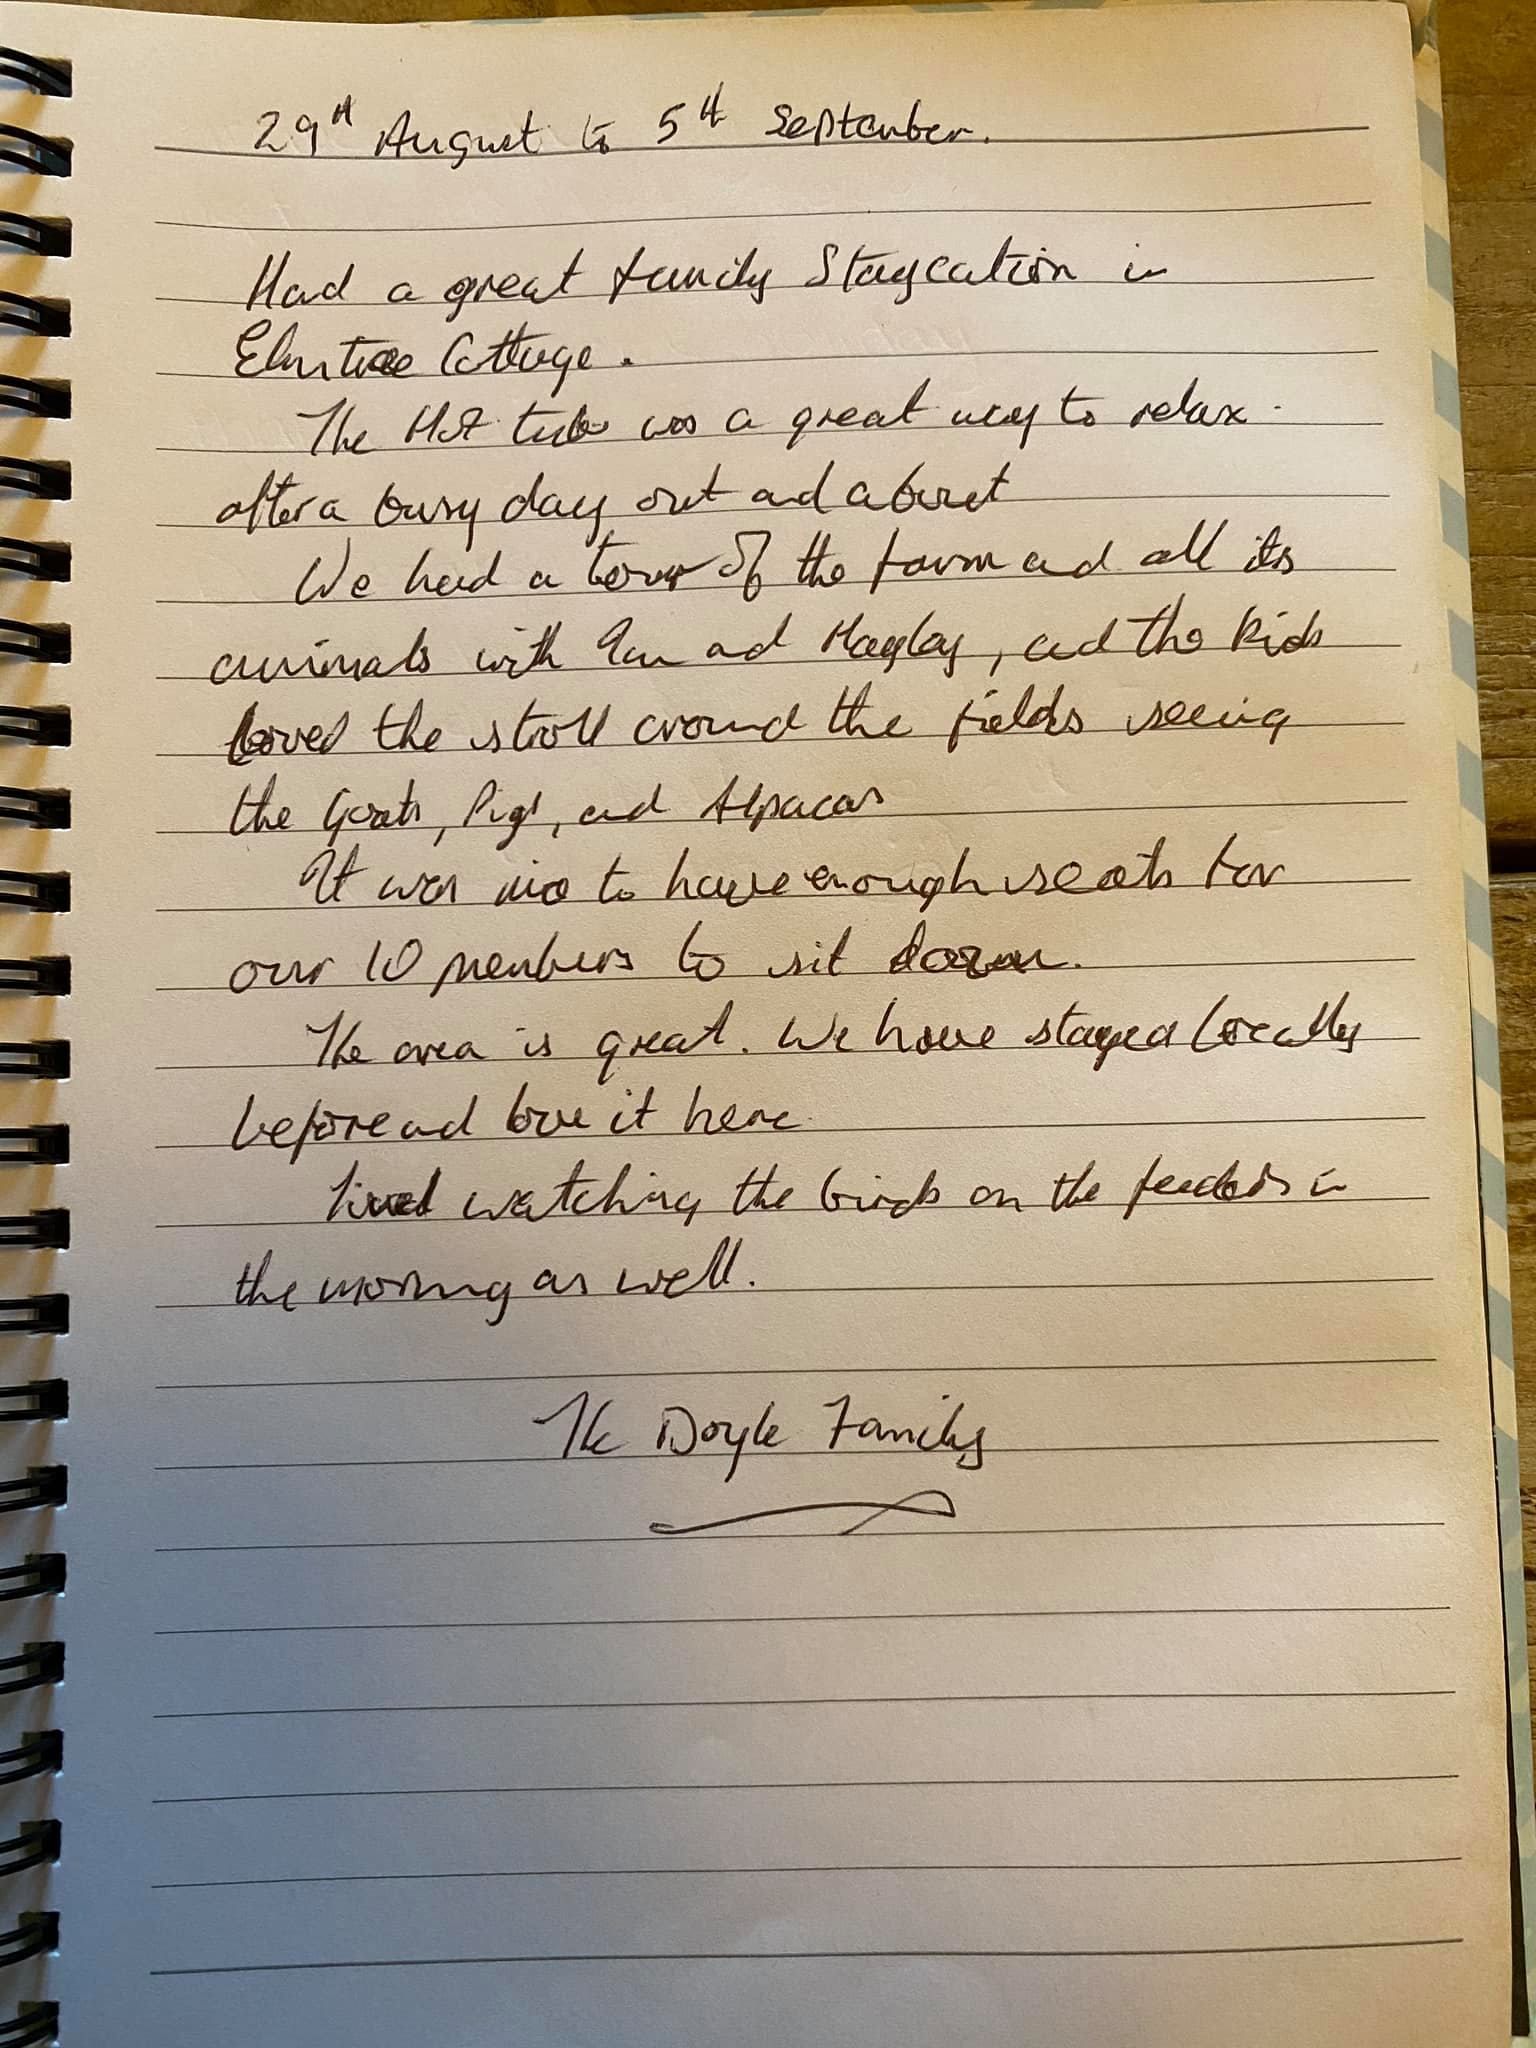 29th August to 5th September.
Had a great family Staycation in
Elmtree Cottage.
The Hot tub was a great way to relax
after a busy day out and about
We had a tour of the farm and all its
animals with Ian and Hayley, and the kids
loved the stroll around the fields seeing
the Goats, Pigs, and Alpacas
It was nice to have enough seats for
our 10 members to sit down.
The area is great. We have stayed locally
before and love it here
Loved watching the birds on the feeders in
the morning as well.
The Doyle Family